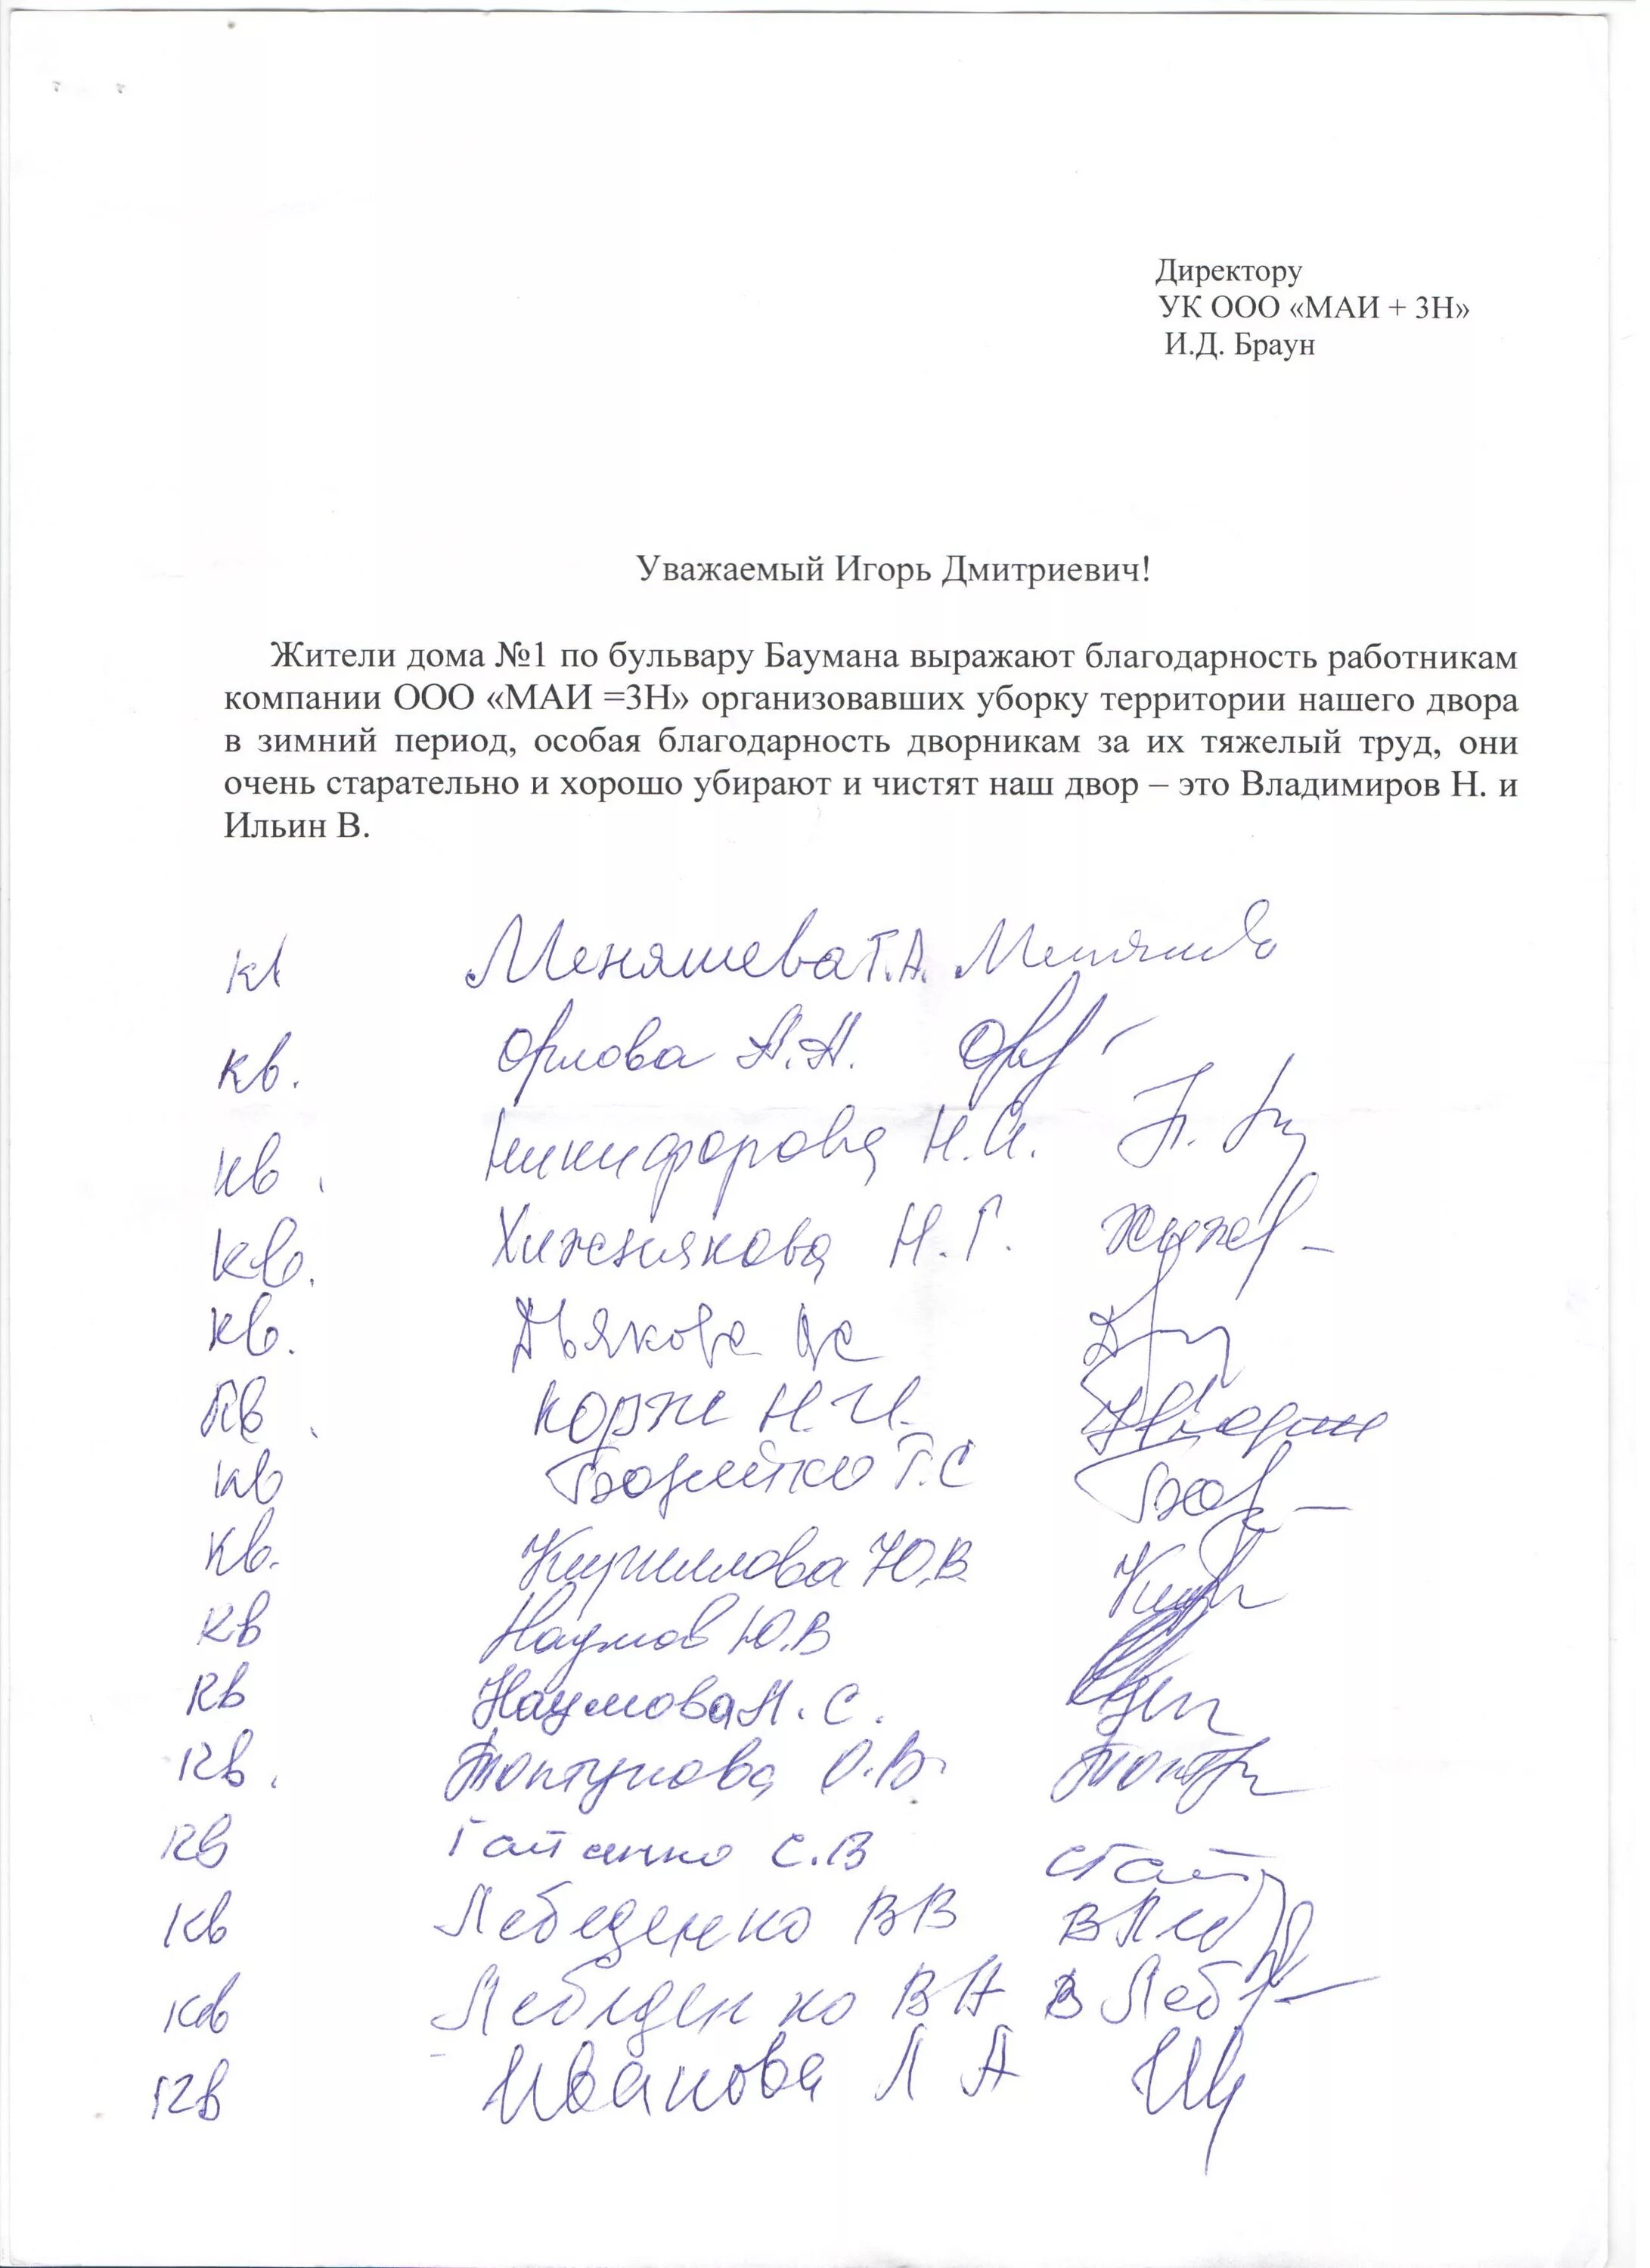 Директору
УК ООО «МАИ + 3Н»
И.Д. Браун
Уважаемый Игорь Дмитриевич!
Жители дома №1 по бульвару Баумана выражают благодарность работникам
компании ООО «МАИ =3Н» организовавших уборку территории нашего двора
в зимний период, особая благодарность дворникам за их тяжелый труд, они
очень старательно и хорошо убирают и чистят наш двор – это Владимиров Н. и
Ильин В.
кв Меняшева Т.А.
кв. Орлова А.А.
кв. Никифорова Н.А.
кв. Хижнякова Н.Г.
кв. Дьякова
кв. Корж Н.И.
кв Т.С
кв. Кириллова Ю.В.
кв Наумов Ю.В
кв Наумова Н.С.
кв. Топтунова О.В.
кв С.В
кв Лебеденко ВВ
кв Лебеденко ВА
кв Иванова Л А